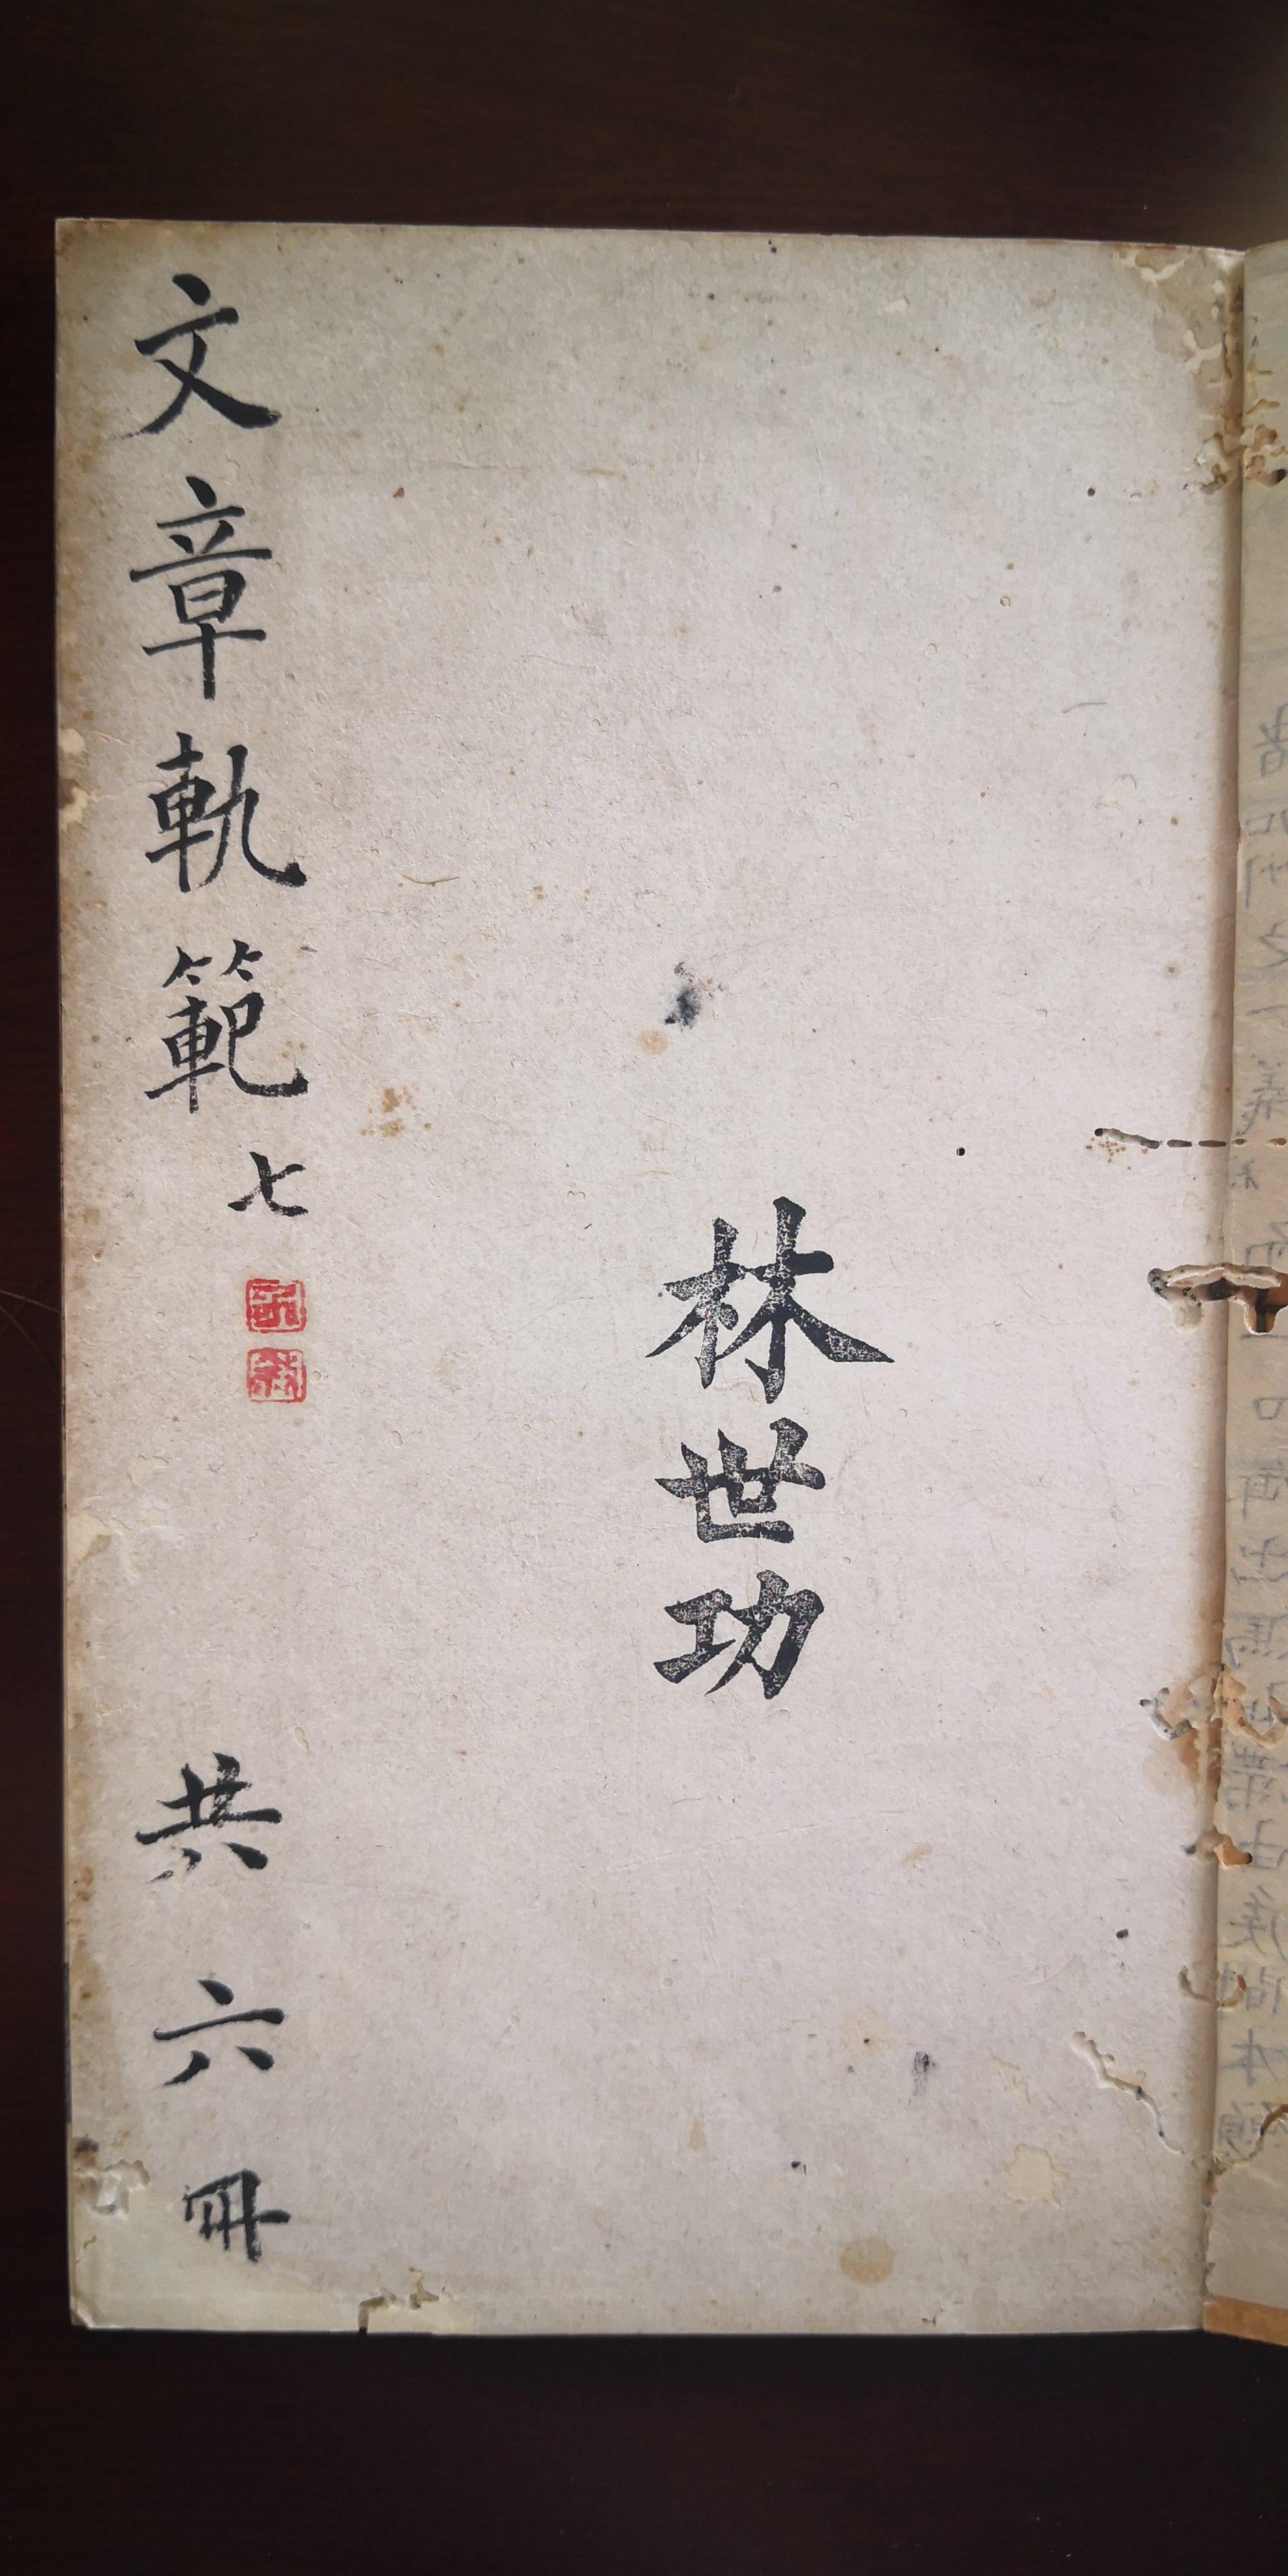 林世功
文章軌範 七
共六冊